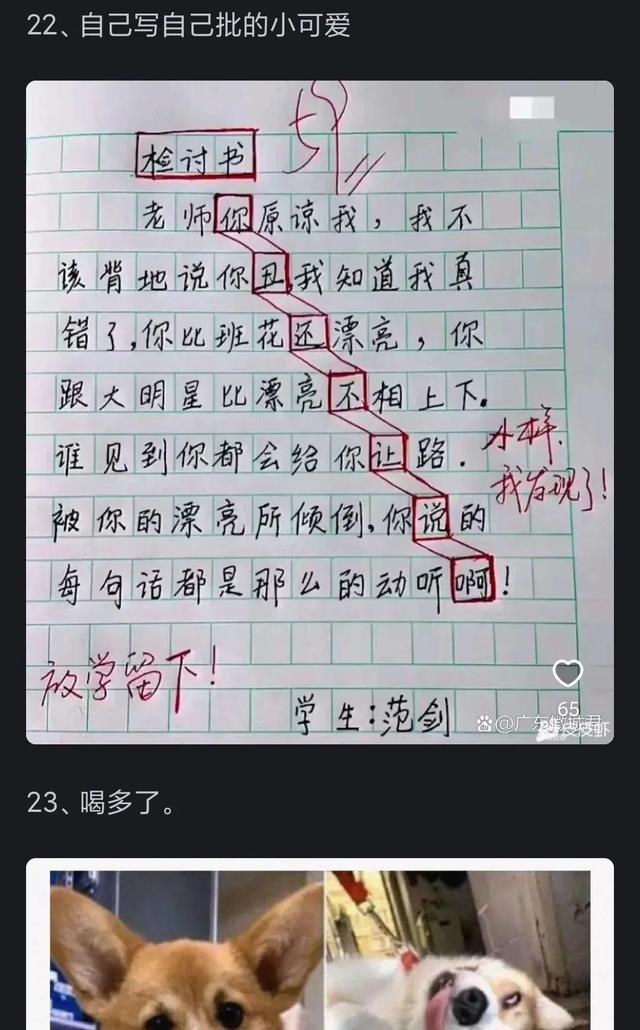 22、自己写自己批的小可爱
59
检讨书
老师你原谅我，我不
该背地说你丑,我知道我真
错了,你比班花还漂亮，你
跟大明星比漂亮不相上下。
谁见到你都会给你让路.
小样,
我发现了!
被你的漂亮所倾倒,你说的
每句话都是那么的动听啊!
放学留下!
学生:范剑
65
@广东
皮皮虾
23、喝多了。